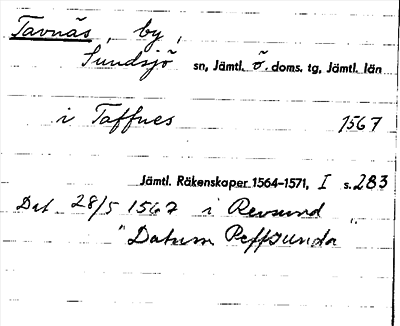 Tavnäs, by,
Sundsjö sn, Jämtl. ö. doms. tg, Jämtl. län
i Taffnes 1567
Jämtl. Räkenskaper 1564-1571, I s. 283
Dat 28/5 1567 i Revsund
"Datum Reffsunda"